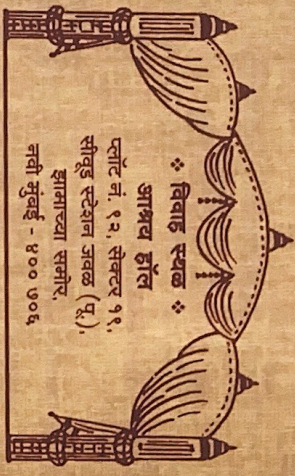 ❖ विवाह स्थळ ❖
आश्रय हॉल
प्लॉट नं. १२, सेक्टर ११,
सीवूड स्टेशन जवळ (पू.),
हावरेच्या समोर,
नवी मुंबई - ४०० ७०६